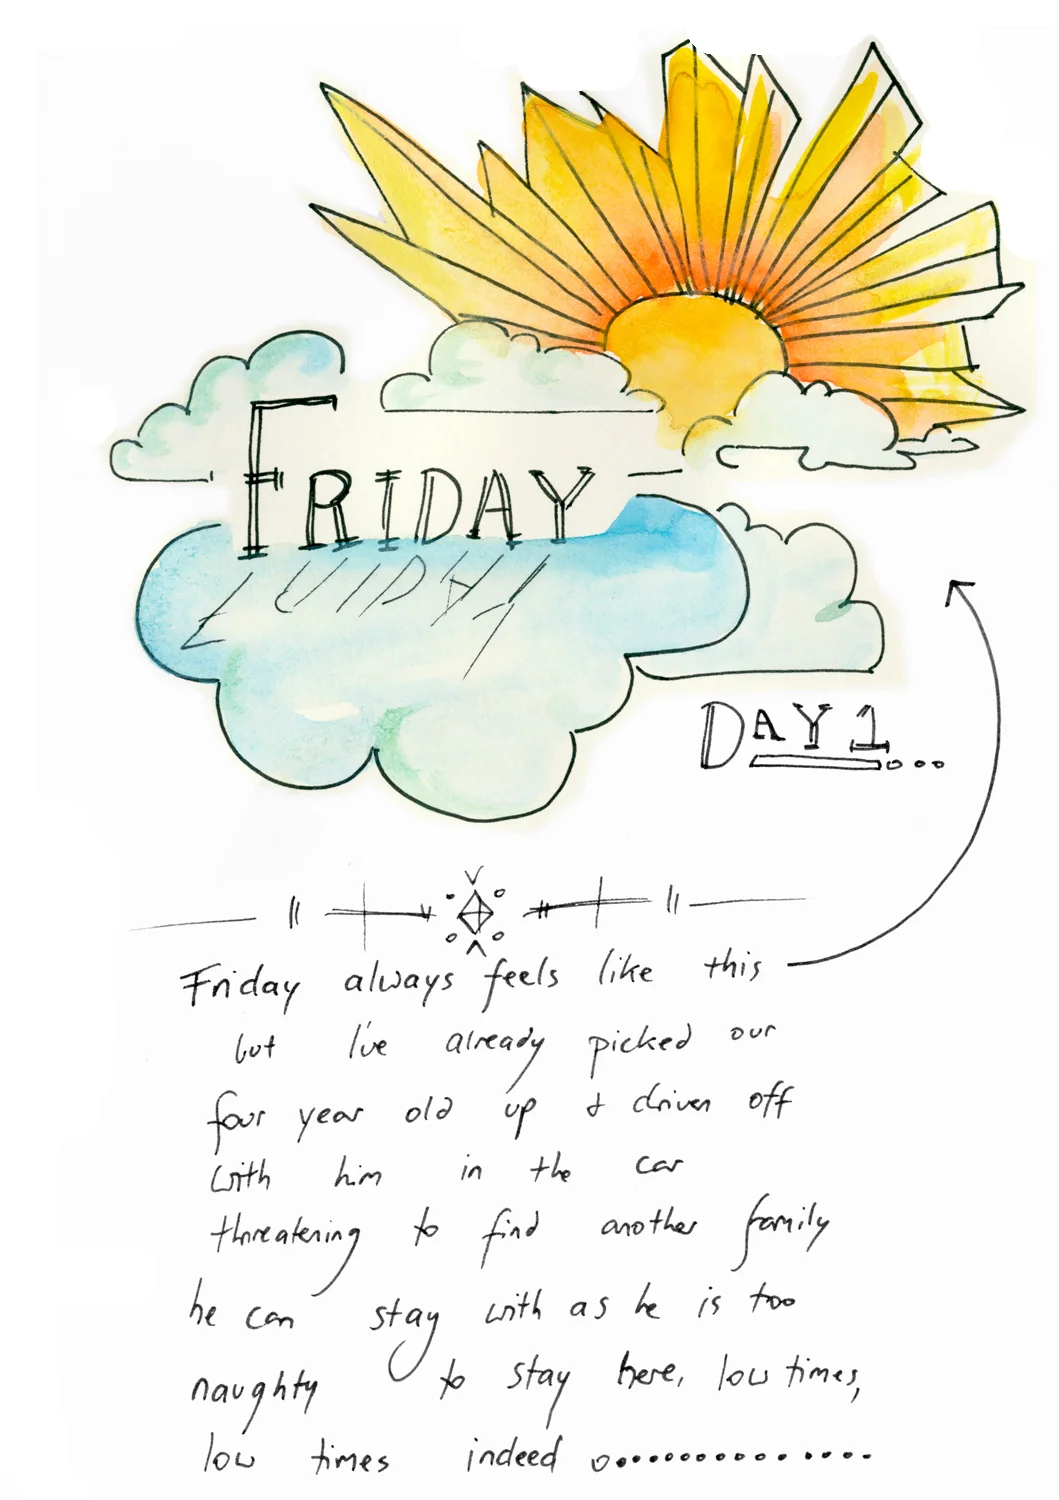 FRIDAY
DAY 1...
Friday always feels like this
but I've already picked our
four year old up & driven off
with him in the car
threatening to find another family
he can stay with as he is too
naughty to stay here, low times,
low times indeed o..............